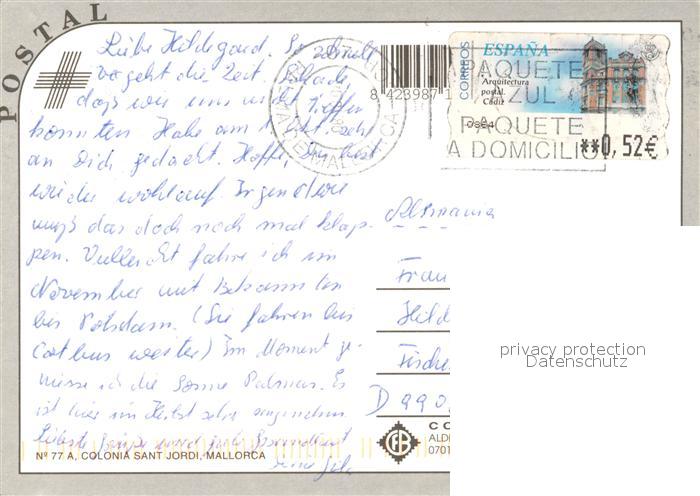 POSTAL
Liebe Hildegard. So schnell
vergeht die Zeit. Schade,
daß wir uns nicht treffen
konnten. Habe am
an Dich gedacht. Hoffe, Du bist
wieder wohlauf. Irgendwie
muß das doch noch mal klap-
pen. Vielleicht fahre ich im
November mit Bekannten
bis Potsdam. (Sie fahren bis
Cottbus weiter) Im Moment ge-
nieße ich die Sonne Palmas. Es
ist hier im Herbst sehr angenehm.
Liebste Grüße und
8 423987
CORREOS
ESPAÑA
Arquitectura
postal.
Cádiz
**0,52€
PAQUETE
AZUL
PAQUETE
A DOMICILIO
MALLORCA
Alemania
Frau
Hild
Fischer
D 990
CO
ALD
0701
Nº 77 A, COLONIA SANT JORDI, MALLORCA
privacy protection
Datenschutz